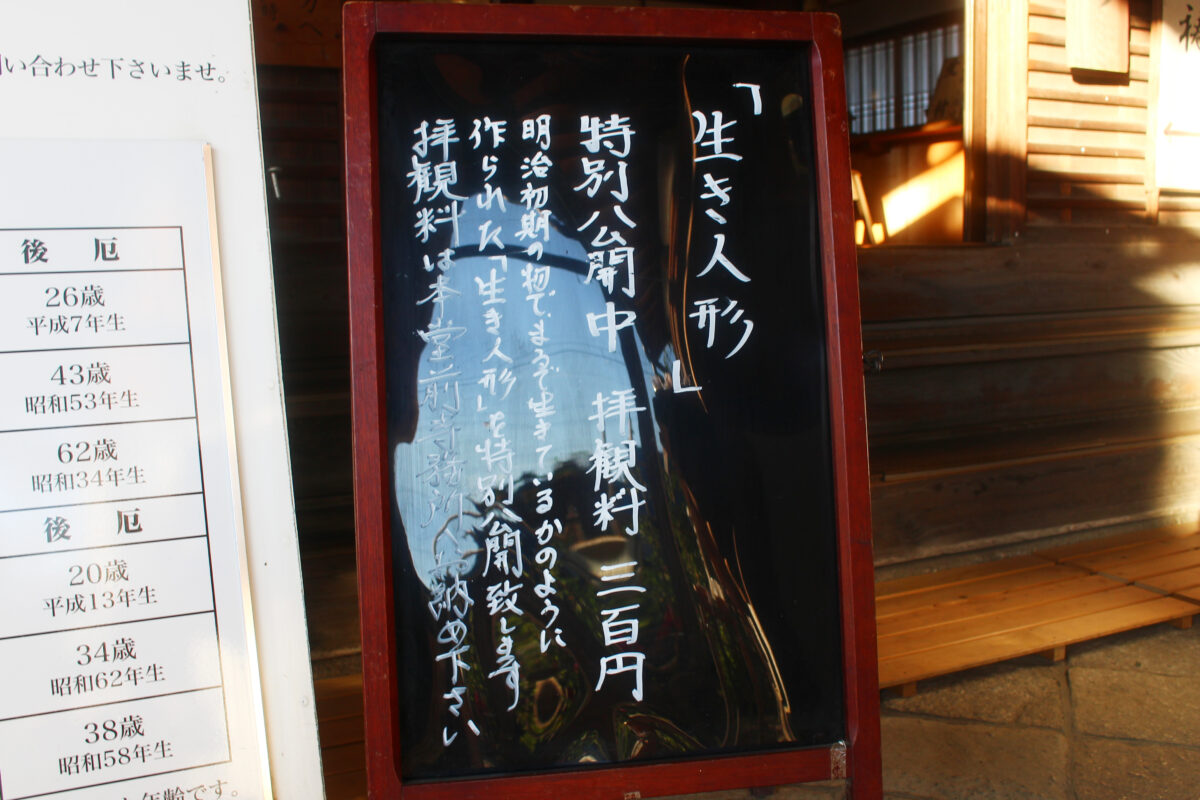 「生き人形」
特別公開中 拝観料 三百円
明治初期の物でまるで生きているかのように
作られた「生き人形」を特別公開致します
拝観料は本堂前寺務所へ納め下さい
い合わせ下さいませ。
後 厄
26歳
平成7年生
43歳
昭和53年生
62歳
昭和34年生
後 厄
20歳
平成13年生
34歳
昭和62年生
38歳
昭和58年生
年齢です。